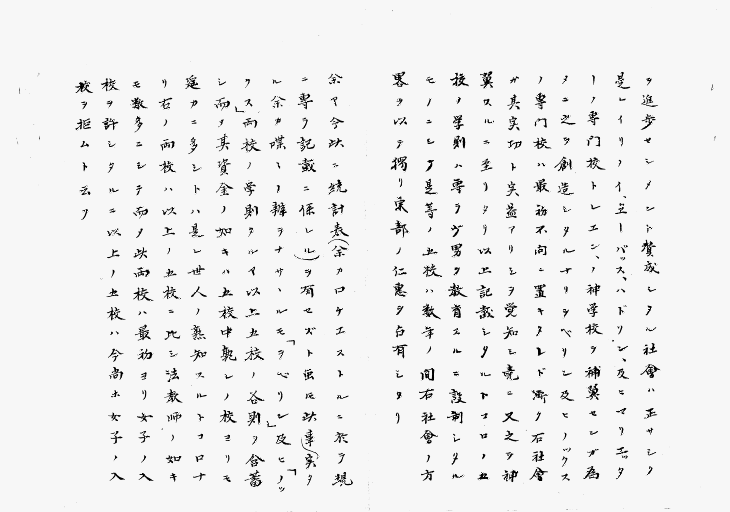 ヲ進歩セシメント賛成シタル社會ハ正サシク
是レイリノイ、立ーバッス、ハドソン、及ヒマリエッタ
ーノ専門校トレエン、ノ神学校ヲ補翼センガ為
タニ之ヲ創造シタルナリヲベリン及ヒノックス
ノ専門校ハ最初不問ニ置キタレド漸ク右社會
ガ其実功ト実益アリシヲ覚知シ竟ニ又之ヲ補
翼スルニ至リタリ以上記載シタルトコロノ五
校ノ学則ハ専ラヲ男タ教育スルニ設制シタル
モノニシテ是等ノ五校ハ数年ノ間右社會ノ方
畧ヲ以テ獨リ東部ノ仁惠ヲ占有シタリ
余ヤ今此ニ統計表(余カロケエストルニ於ヲ現
ニ専ラ記載ニ係レル)ヲ有セズト虽ﾓ此事実タ
ル余カ喋々ノ辨ヲナサヾルモ「ヲベリン及ヒノッ
クス」両校ノ学則タルイ以上五校ノ各則ヲ含蓄
シ而ヲ其資金ノ如キハ五校中孰レノ校ヨリモ
遥カニ多シトハ是レ世人ノ熟知スルトコロナ
リ右ノ両校ハ以上ノ五校ニ比シ法教師ノ如キ
モ数多ニシテ而ヲ此両校ハ最初ヨリ女子ノ入
校ヲ許シタルニ以上ノ五校ハ今尚ホ女子ノ入
校ヲ拒ムト云フ